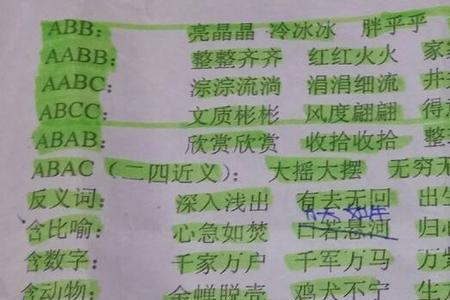 ABB： 亮晶晶 冷冰冰 胖乎乎
AABB： 整整齐齐 红红火火 家
AABC： 淙淙流淌 涓涓细流 井
ABCC： 文质彬彬 风度翩翩 得
ABAB： 欣赏欣赏 收拾收拾 整
ABAC（二四近义）： 大摇大摆 无穷无
反义词： 深入浅出 有去无回 出生
含比喻： 心急如焚 口若悬河 归心
含数字： 千家万户 千军万马 万紫
含动物： 金蝉脱壳 鸡犬不宁 生